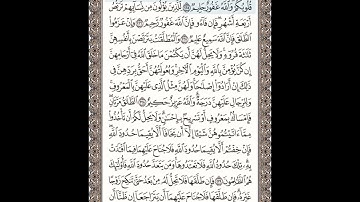 قُلُوبُكُمْ وَاللَّهُ غَفُورٌ حَلِيمٌ ۝ لِّلَّذِينَ يُؤْلُونَ مِن نِّسَائِهِمْ تَرَبُّصُ
أَرْبَعَةِ أَشْهُرٍ فَإِن فَاءُو فَإِنَّ اللَّهَ غَفُورٌ رَّحِيمٌ ۝ وَإِنْ عَزَمُوا
الطَّلَاقَ فَإِنَّ اللَّهَ سَمِيعٌ عَلِيمٌ ۝ وَالْمُطَلَّقَاتُ يَتَرَبَّصْنَ بِأَنفُسِهِنَّ
ثَلَاثَةَ قُرُوءٍ وَلَا يَحِلُّ لَهُنَّ أَن يَكْتُمْنَ مَا خَلَقَ اللَّهُ فِي أَرْحَامِهِنَّ
إِن كُنَّ يُؤْمِنَّ بِاللَّهِ وَالْيَوْمِ الْآخِرِ وَبُعُولَتُهُنَّ أَحَقُّ بِرَدِّهِنَّ فِي
ذَٰلِكَ إِنْ أَرَادُوا إِصْلَاحًا وَلَهُنَّ مِثْلُ الَّذِي عَلَيْهِنَّ بِالْمَعْرُوفِ
وَلِلرِّجَالِ عَلَيْهِنَّ دَرَجَةٌ وَاللَّهُ عَزِيزٌ حَكِيمٌ ۝ الطَّلَاقُ مَرَّتَانِ
فَإِمْسَاكٌ بِمَعْرُوفٍ أَوْ تَسْرِيحٌ بِإِحْسَانٍ وَلَا يَحِلُّ لَكُمْ أَن تَأْخُذُوا
مِمَّا آتَيْتُمُوهُنَّ شَيْئًا إِلَّا أَن يَخَافَا أَلَّا يُقِيمَا حُدُودَ اللَّهِ
فَإِنْ خِفْتُمْ أَلَّا يُقِيمَا حُدُودَ اللَّهِ فَلَا جُنَاحَ عَلَيْهِمَا فِيمَا افْتَدَتْ
بِهِ تِلْكَ حُدُودُ اللَّهِ فَلَا تَعْتَدُوهَا وَمَن يَتَعَدَّ حُدُودَ اللَّهِ فَأُولَٰئِكَ
هُمُ الظَّالِمُونَ ۝ فَإِن طَلَّقَهَا فَلَا تَحِلُّ لَهُ مِن بَعْدُ حَتَّىٰ تَنكِحَ زَوْجًا
غَيْرَهُ فَإِن طَلَّقَهَا فَلَا جُنَاحَ عَلَيْهِمَا أَن يَتَرَاجَعَا إِن ظَنَّا أَن